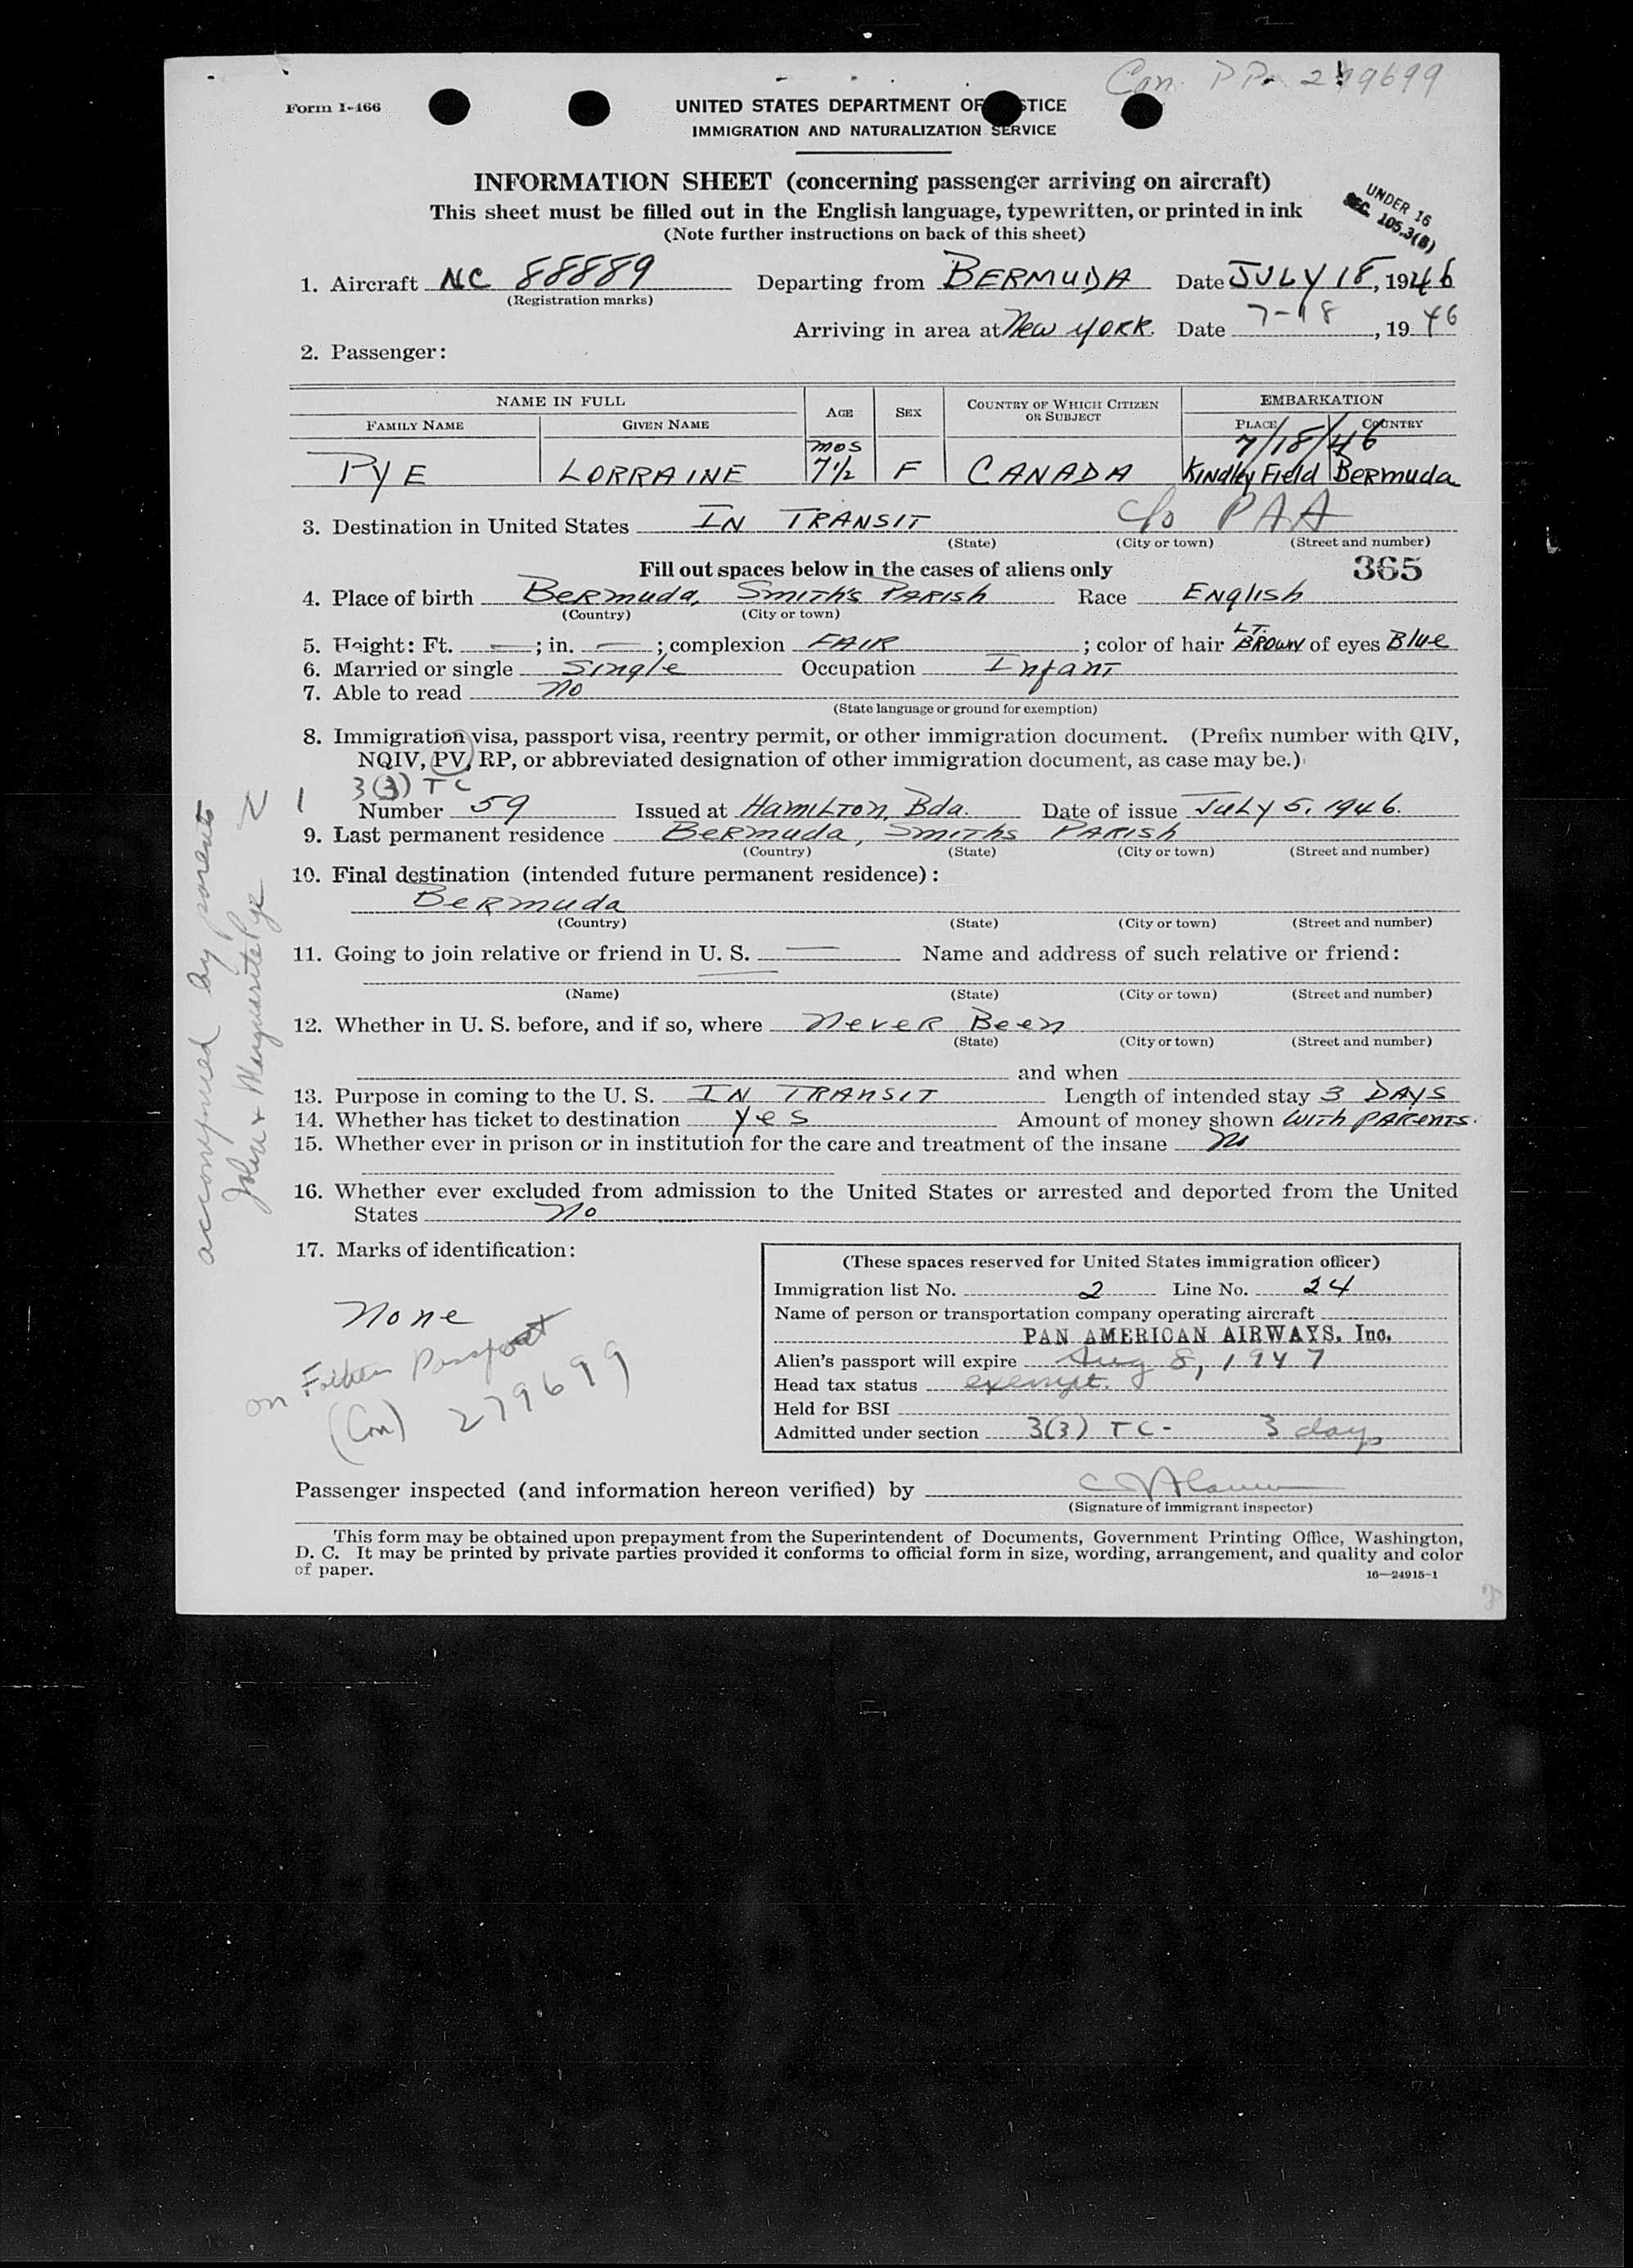 Can. PP. 279699
Form I-466
UNITED STATES DEPARTMENT OF JUSTICE
IMMIGRATION AND NATURALIZATION SERVICE
INFORMATION SHEET (concerning passenger arriving on aircraft)
This sheet must be filled out in the English language, typewritten, or printed in ink
(Note further instructions on back of this sheet)
UNDER 16
SEC. 105.3(B)
1. Aircraft NC 88889 Departing from BERMUDA Date JULY 18, 1946
(Registration marks)
Arriving in area at New YORK. Date 7-18, 1946
2. Passenger:
NAME IN FULL AGE SEX COUNTRY OF WHICH CITIZEN OR SUBJECT EMBARKATION
FAMILY NAME GIVEN NAME PLACE COUNTRY
mos 7/18/46
PYE LORRAINE 7 1/2 F CANADA Kindley Field Bermuda
3. Destination in United States IN TRANSIT c/o PAA
(State) (City or town) (Street and number)
Fill out spaces below in the cases of aliens only 365
4. Place of birth Bermuda, Smith's PARISH Race English
(Country) (City or town)
5. Height: Ft. — ; in. — ; complexion FAIR ; color of hair LT. BROWN of eyes Blue
6. Married or single Single Occupation Infant
7. Able to read no
(State language or ground for exemption)
8. Immigration visa, passport visa, reentry permit, or other immigration document. (Prefix number with QIV,
NQIV, PV, RP, or abbreviated designation of other immigration document, as case may be.)
3(3) TC
Number 59 Issued at Hamilton, Bda. Date of issue July 5, 1946.
9. Last permanent residence Bermuda, Smiths PARISH
(Country) (State) (City or town) (Street and number)
10. Final destination (intended future permanent residence):
Bermuda
(Country) (State) (City or town) (Street and number)
11. Going to join relative or friend in U. S. — Name and address of such relative or friend:
(Name) (State) (City or town) (Street and number)
12. Whether in U. S. before, and if so, where Never Been
(State) (City or town) (Street and number)
and when
13. Purpose in coming to the U. S. IN TRANSIT Length of intended stay 3 DAYS
14. Whether has ticket to destination yes Amount of money shown With PARENTS.
15. Whether ever in prison or in institution for the care and treatment of the insane no
16. Whether ever excluded from admission to the United States or arrested and deported from the United
States No
accompanied by parents
John & Marguerite Pye
17. Marks of identification:
None
on Father Passport
(Can) 279699
(These spaces reserved for United States immigration officer)
Immigration list No. 2 Line No. 24
Name of person or transportation company operating aircraft
PAN AMERICAN AIRWAYS, Inc.
Alien's passport will expire Aug 8, 1947
Head tax status exempt.
Held for BSI
Admitted under section 3(3) TC - 3 days
Passenger inspected (and information hereon verified) by
(Signature of immigrant inspector)
This form may be obtained upon prepayment from the Superintendent of Documents, Government Printing Office, Washington,
D. C. It may be printed by private parties provided it conforms to official form in size, wording, arrangement, and quality and color
of paper.
16—24915-1